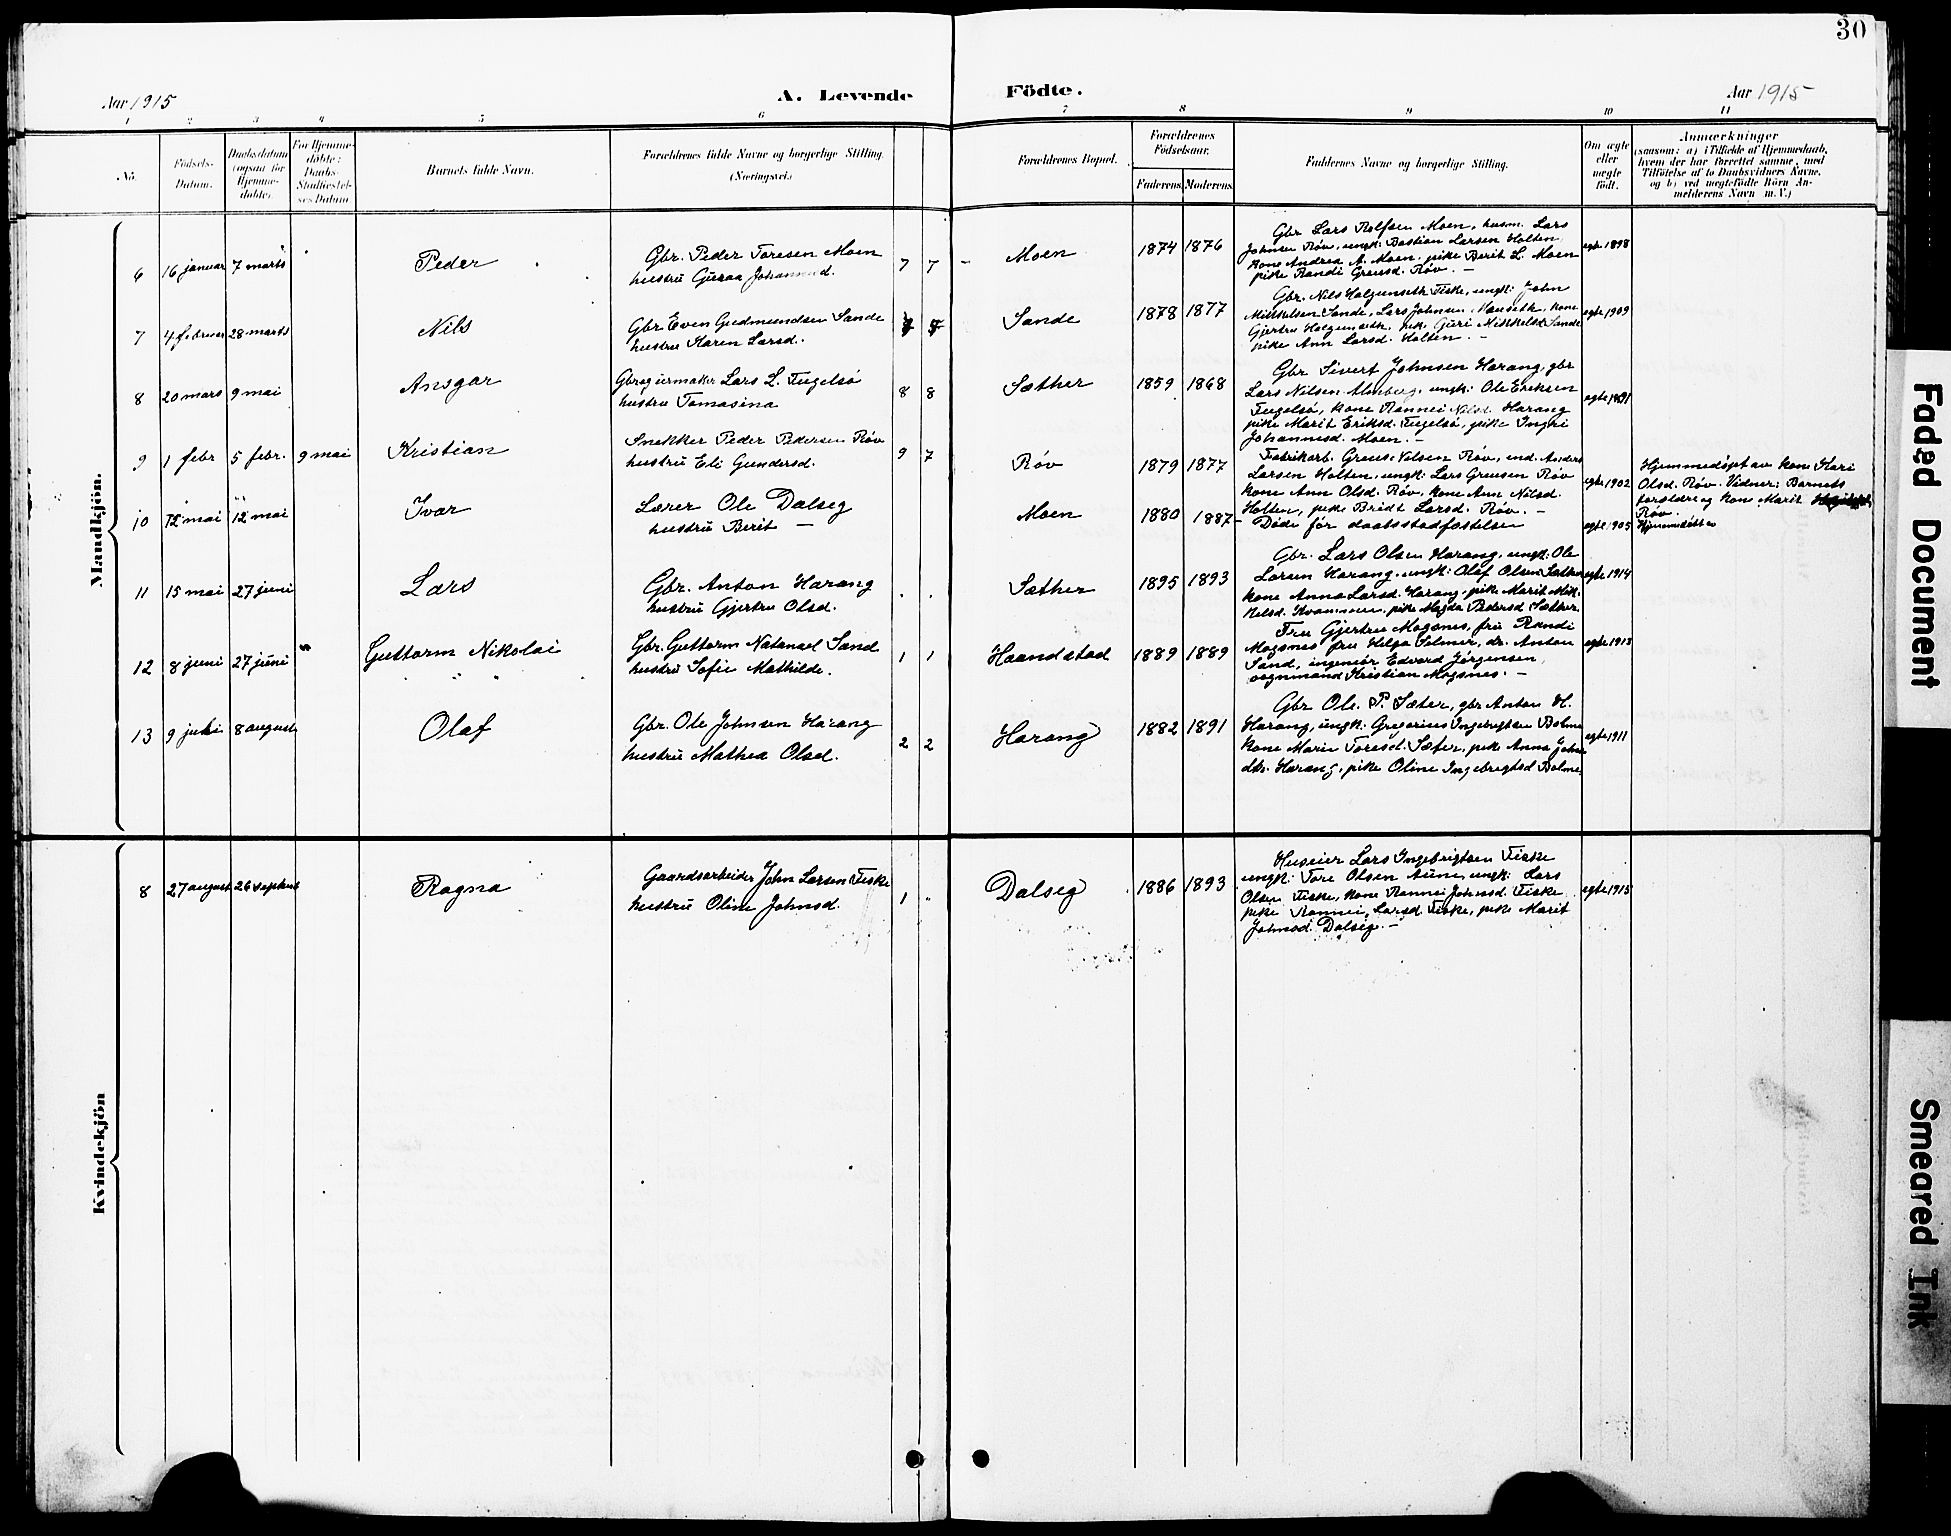 30
Aar 1915
A. Levende
Födte.
Aar 1915
1 2 3 4 5 6 7 8 9 10 11
No.
Födsels-
Datum.
Daabsdatum
(ogsaa for
Hjemme-
döbte).
For Hjemme-
döbte:
Daabs-
Stadfæstel-
ses Datum
Barnets fulde Navn.
Forældrenes fulde Navne og borgerlige Stilling.
(Næringsvei.)
Forældrenes Bopæl.
Forældrenes
Födselsaar.
Faderens. Moderens.
Faddernes Navne og borgerlige Stilling.
Om ægte
eller
uægte
født.
Anmærkninger
(saasom: a) i Tilfælde af Hjemmedaab,
hvem der har forrettet samme, med
Tilföielse af to Daabsvidners Navne,
og b) ved uægtefödte Börn An-
melderens Navn m. V.)
Mandkjön.
6 16 januar 7 marts
Peder
Gbr. Peder Toresen Moen
hustru Guraa
7 7
Moen
1874 1876
Gbr Lars Rolfsen Moen, husm. Lars
Johnsen Røv, ungk: Bastian Larsen Holten
kone Andrea A. Moen, pike Berit L. Moen
pike Randi Greusd. Røv. –
egte 1898
7 4 februar 28 marts
Nils
Gbr Even Gudmundsen Sande
hustru Karen Larsd.
Sande
1878 1877
Gbr. Nils Halgunseth Fiske, ungk: John
Mikkelsen Sande, Lars Johnsen Hauseth, kone
Gjertru Halgunseth, pik. Guri Mikkelsd Sande
pike Ann Larsd. Holten. –
egte 1909
8 20 mars 9 mai
Ansgar
Gbr og urmaker Lars L. Fugelsö
hustru Tomasina
8 8
Sæther
1859 1868
Gbr Sivert Johnsen Harang, gbr
Lars Nilsen Almberg, ungk: Ole Eriksen
Fugelsö, kone Rannei Nilsd. Harang
pike Marit Eriksd. Fugelsö, pike Ingri
Johannesd. Moen. –
egte 1891
9 1 febr 5 febr. 9 mai
Kristian
Snekker Peder Pedersen Röv
hustru Eli Gundersd.
9 7
Röv
1879 1877
Fabrikarb. Greus Nilsen Röv, ind. Anders
Larsen Holten, ungk: Lars Greusen Röv
kone Ann Olsd. Röv, kone Ann Nilsd.
Holten, pike Bridt Larsd. Röv. –
egte 1902
Hjemmedöpt av kone Kari
Olsd. Röv. Vidner: Barnets
forældre og kone Marit
Röv.
10 12 mai 12 mai
Ivar
Lærer Ole Dalseg
hustru Berit –
Moen
1880 1887
Döde för daabsstadfæstelsen
egte 1905
Hjemmedöbt
11 15 mai 27 juni
Lars
Gbr. Anton Harang
hustru Gjertru Olsd.
Sæther
1895 1893
Gbr. Lars Olsen Harang, ungk: Ole
Larsen Harang, ungk: Olaf Olsen Sæther
kone Anna Larsd. Harang, pike Marit Mik-
kelsd. Kvammen, pike Magda Pedersd Sæther.
egte 1914
12 8 juni 27 juni
Guttorm Nikolai
Gbr. Guttorm Natanael Sand
hustru Sofie Mathilde.
1 1
Haandstad
1889 1889
Fru Gjertru Mogsnes, fru Randi
Mogsnes fru Helga Solmer, dr. Anton
Sand, ingeniör Edvard Jörgensen,
vognmand Kristian Mogsnes. –
egte 1913
13 9 juli 8 august
Olaf
Gbr. Ole Johnsen Harang
hustru Mathea Olsd.
2 2
Harang
1882 1891
Gbr Ole P. Sæter, gbr Anton H.
Harang, ungk: Gregorius Ingebrigtsen Bolme
kone Marie Toresd. Sæter, pike Anna Johns
dtr. Harang, pike Oline Ingebrigtsd Bolme.
egte 1911
Kvindekjön
8 27 august 26 septemb
Ragna
Gaardsarbeider John Larsen Fiske
hustru Oline Johnsd.
1
Dalseg
1886 1893
Huseier Lars Ingebrigtsen Fiske
ungk: Tore Olsen Aune, ungk: Lars
Olsen Fiske, kone Rannei Johnsd. Fiske
pike Rannei Larsd. Fiske, pike Marit
Johnsd. Dalseg. –
egte 1915
Faded Document
Smeared Ink